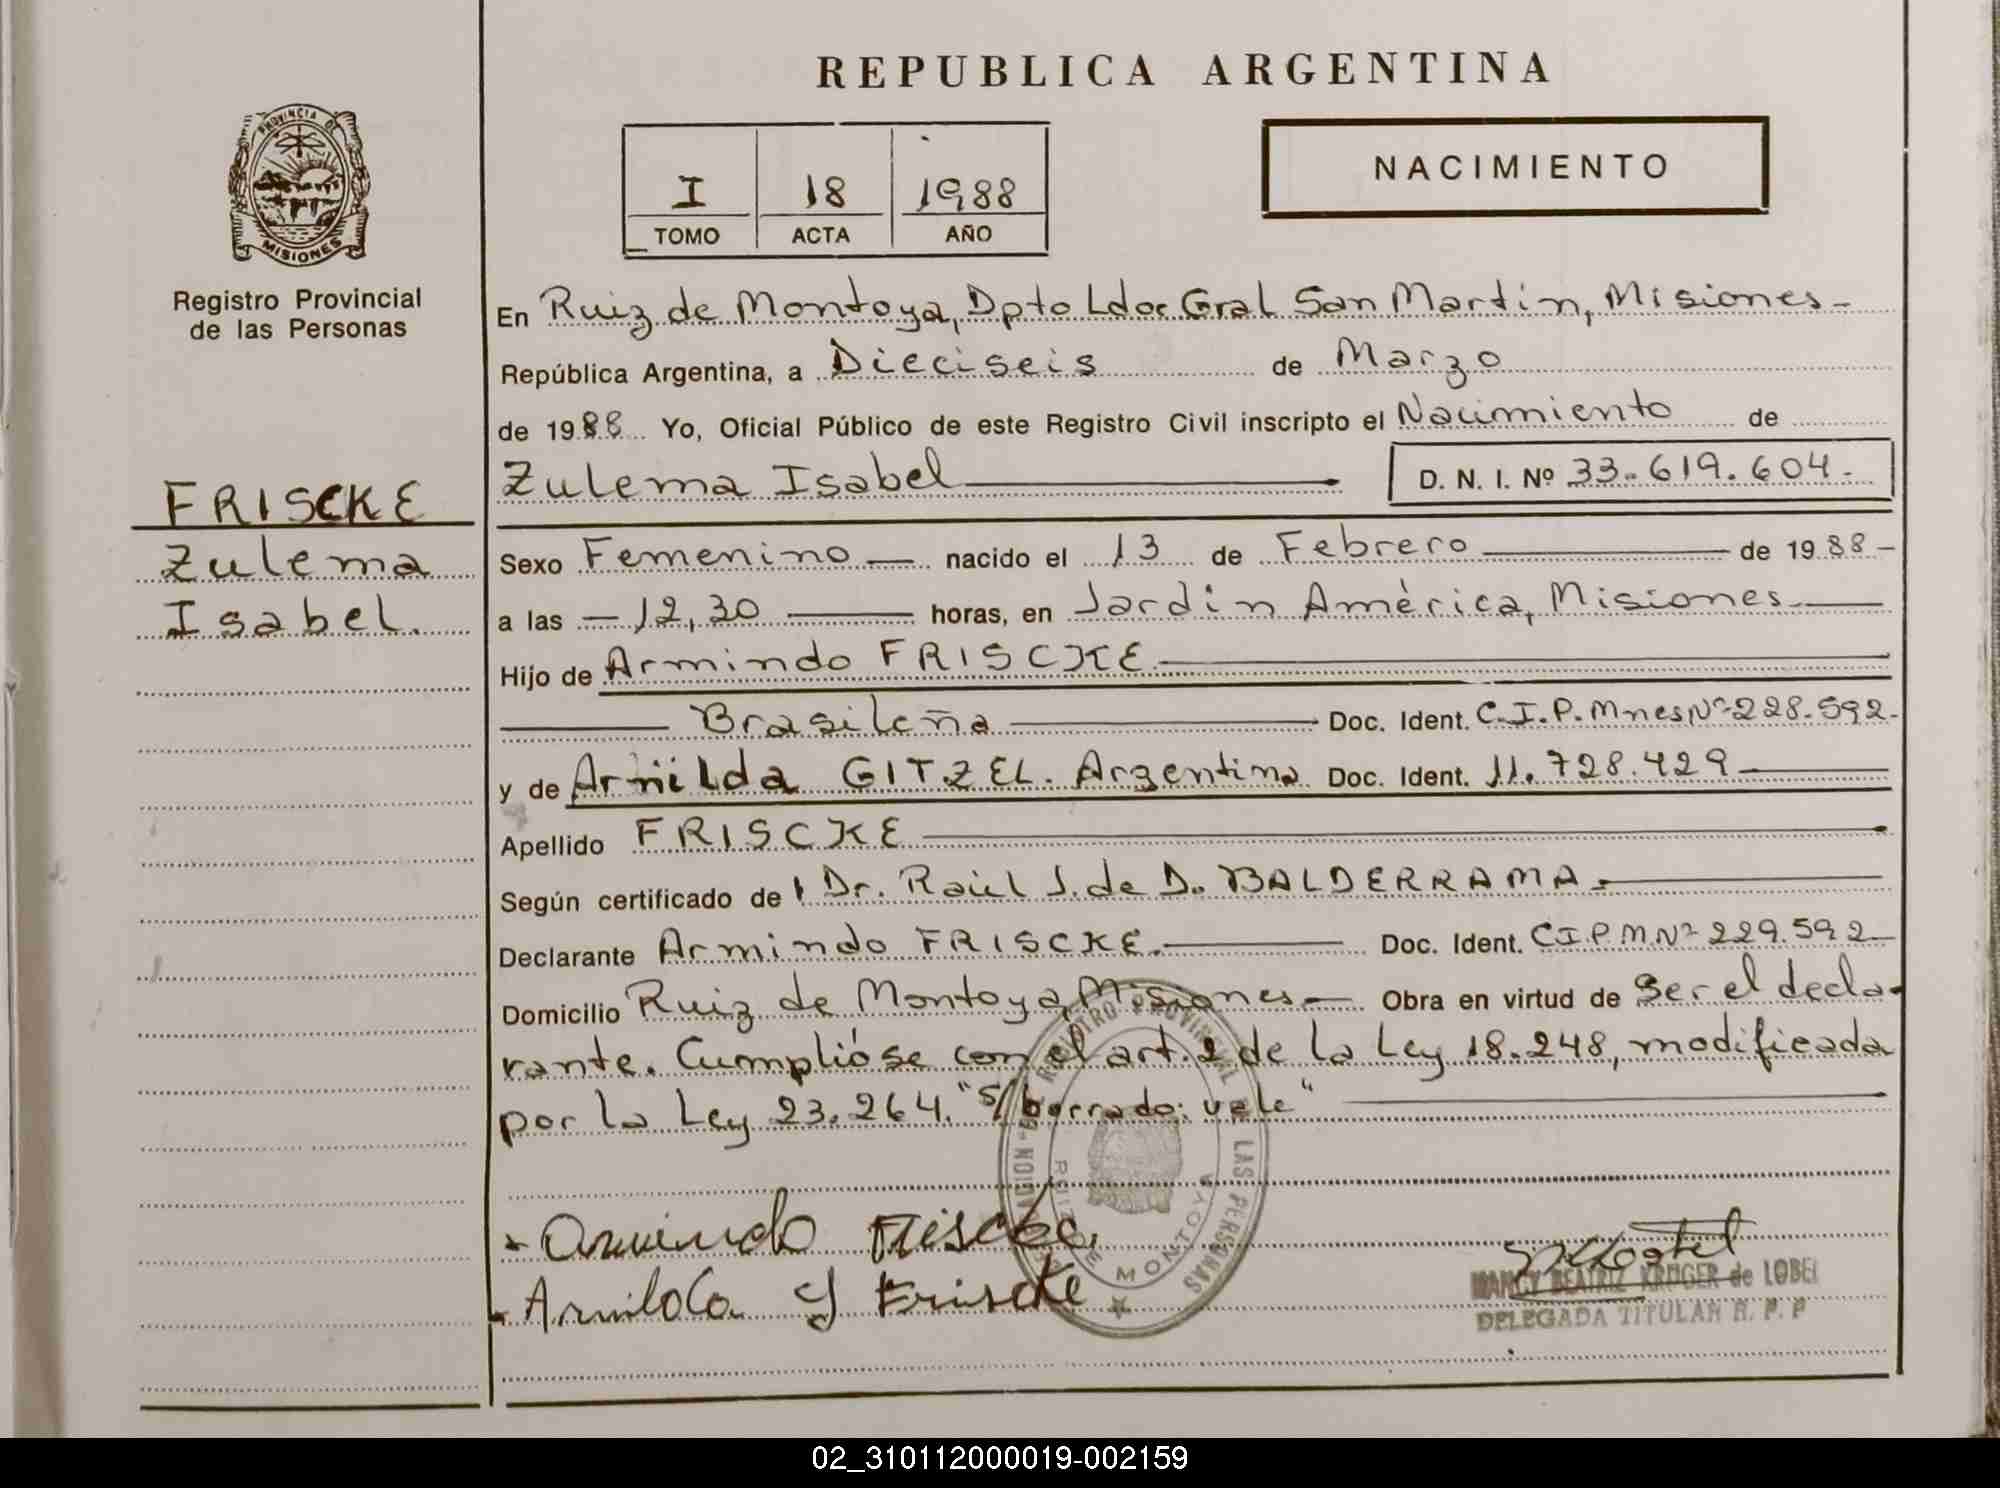 REPUBLICA ARGENTINA
PROVINCIA DE
MISIONES
Registro Provincial
de las Personas
I 18 1988
TOMO ACTA AÑO
NACIMIENTO
FRISCKE
Zulema
Isabel.
En Ruiz de Montoya, Dpto Ldor Gral San Martin, Misiones-
República Argentina, a Dieciseis de Marzo
de 1988 Yo, Oficial Público de este Registro Civil inscripto el Nacimiento de
Zulema Isabel D. N. I. Nº 33.619.604.
Sexo Femenino nacido el 13 de Febrero de 1988-
a las -12,30 horas, en Jardin América, Misiones
Hijo de Armindo FRISCKE
Brasileña Doc. Ident. C.I.P. Mnes Nº 228.592-
y de Arnilda GITZEL. Argentina Doc. Ident. 11.728.429
Apellido FRISCKE
Según certificado de Dr. Raúl J. de D. BALDERRAMA.
Declarante Armindo FRISCKE. Doc. Ident. CIPM Nº 229.592
Domicilio Ruiz de Montoya, Misiones Obra en virtud de Ser el decla-
rante. Cumplióse con el art. 2 de la Ley 18.248, modificada
por la Ley 23.264. "S/borrado: vale"
REGISTRO PROVINCIAL DE LAS PERSONAS
RUIZ DE MONTOYA
Armindo Friscke.
Arnilda G Friscke
NANCY BEATRIZ KRUGER de LOBEL
DELEGADA TITULAR R. P. P
02_310112000019-002159